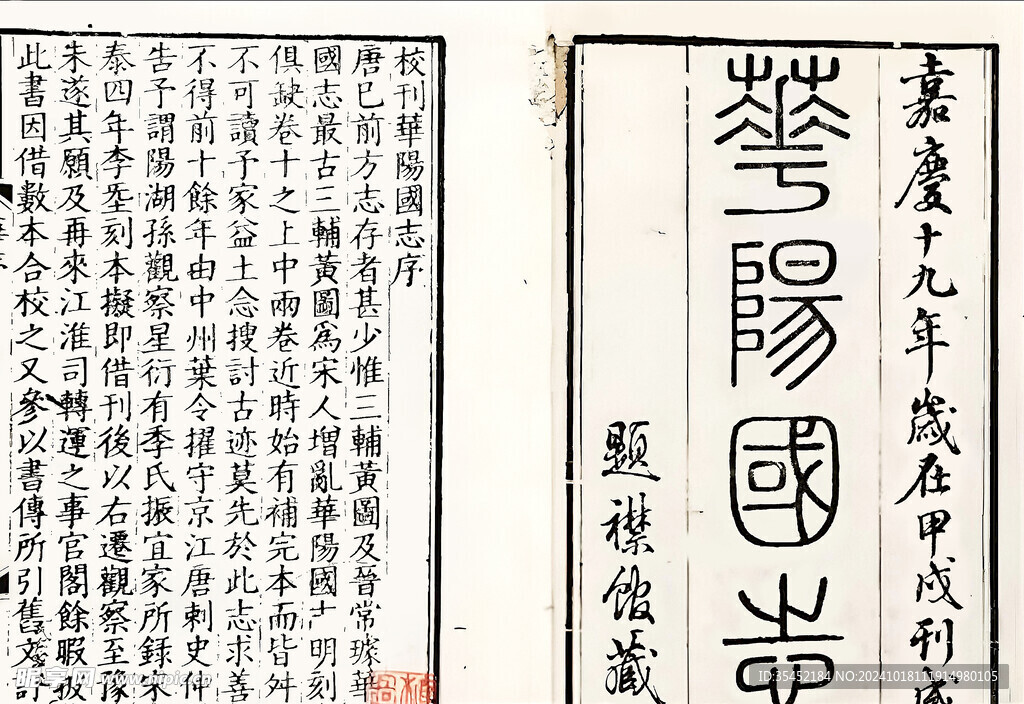 嘉慶十九年歲在甲戌刊
華陽國志
題襟館藏
校刊華陽國志序
唐已前方志存者甚少惟三輔黃圖及晉常璩華
國志最古三輔黃圖爲宋人增亂華陽國 明刻
俱缺卷十之上中兩卷近時始有補完本而皆舛
不可讀予家益土念搜討古迹莫先於此志求善
不得前十餘年由中州葉令擢守京江唐刺史仲
告予謂陽湖孫觀察星衍有季氏振宜家所錄宋
泰四年李𡊮刻本擬即借刊後以右遷觀察至豫
朱遂其願及再來江淮司轉運之事官閣餘暇扱
此書因借數本合校之又參以書傳所引舊文訂
昵享网 www.nipic.cn
ID:35452184 NO:20241018111914980105